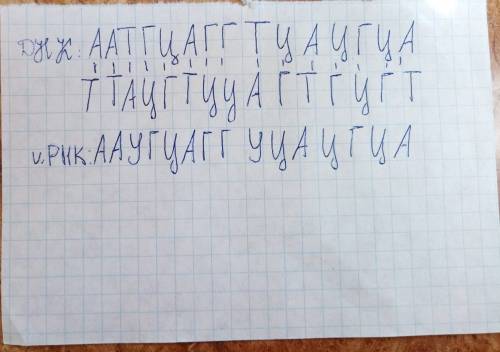 ДНК: ААТГЦАГГ ТЦАЦГЦА
ТТАЦГТЦЦАГТГЦГТ
и.РНК: ААУГЦАГГ УЦАЦГЦА